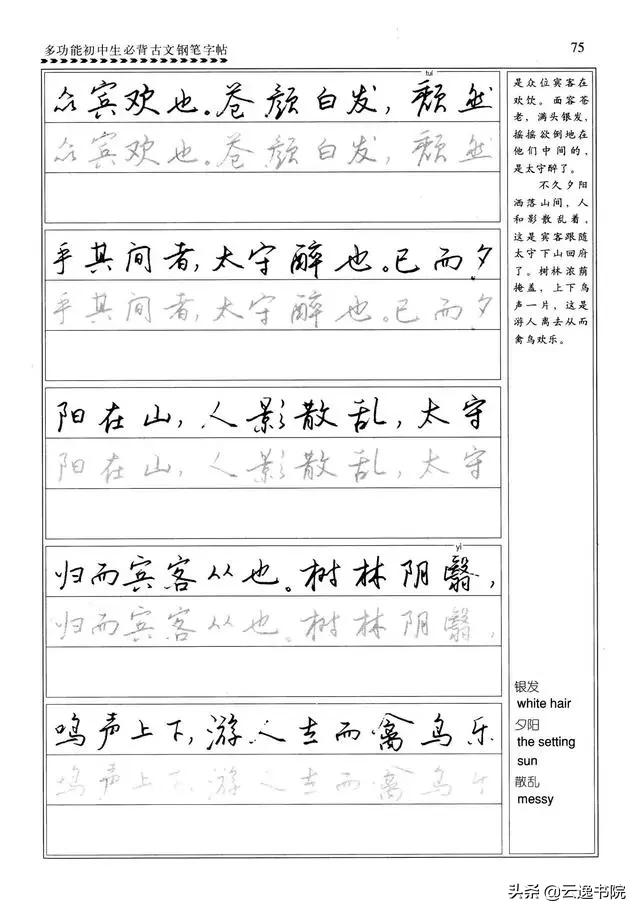 多功能初中生必背古文钢笔字帖
75
tuí
众宾欢也。苍颜白发,颓然
众宾欢也。苍颜白发,颓然
乎其间者,太守醉也。已而夕
乎其间者,太守醉也。已而夕
阳在山,人影散乱,太守
阳在山,人影散乱,太守
yì
归而宾客从也。树林阴翳,
归而宾客从也。树林阴翳,
鸣声上下,游人去而禽鸟乐
鸣声上下,游人去而禽鸟乐
是众位宾客在
欢饮。面容苍
老,满头银发,
摇摇欲倒地在
他们中间的,
是太守醉了。
不久夕阳
洒落山间,人
和影散乱着,
这是宾客跟随
太守下山回府
了。树林浓荫
掩盖,上下鸟
声一片,这是
游人离去从而
禽鸟欢乐。
银发
white hair
夕阳
the setting
sun
散乱
messy
头条 @云逸书院